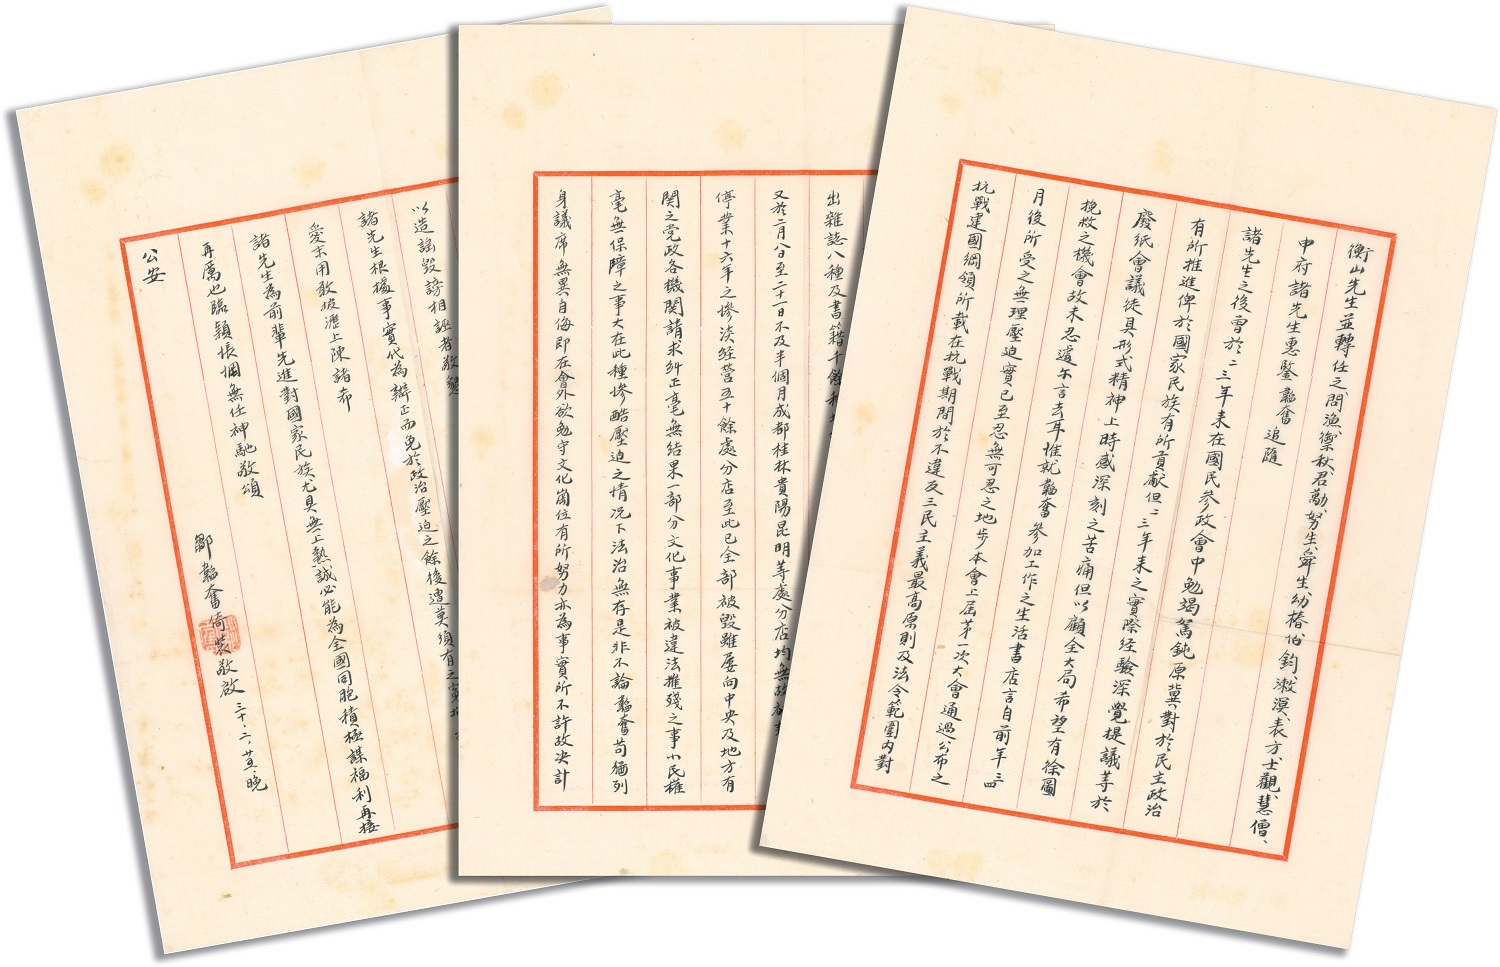 衡山先生並轉任之、問漁、禦秋、君勱、努生、舜生、幼椿、伯鈞、漱溟、表方、士觀、慧僧、
申府諸先生惠鑒韜奮追隨
諸先生之後曾於二三年來在國民參政會中勉竭駑鈍原冀對於民主政治
有所推進俾於國家民族有所貢獻但二三年來之實際經驗深覺提議等於
廢紙會議徒具形式精神上時感深刻之苦痛但以顧全大局希望有徐圖
挽救之機會故未忍遽尔言去耳惟就韜奮參加工作之生活書店言自前年三四
月後所受之無理壓迫實已至忍無可忍之地步本會上屆第一次大會通過公布之
抗戰建國綱領所載在抗戰期間於不違反三民主義最高原則及法令範圍內對
出雜誌八種及書籍千餘種
又於二月八日至二十一日不及半個月成都桂林貴陽昆明等處分店均無故被
停業十六年之慘淡經營五十餘處分店至此已全部被毀雖屢向中央及地方有
関之党政各機関請求糾正毫無結果一部分文化事業被違法摧殘之事小民權
毫無保障之事大在此種慘酷壓迫之情況下法治無存是非不論韜奮苟猶列
身議席無異自侮即在會外欲勉守文化崗位有所努力亦為事實所不許故決計
以造謠毀謗相誣者敬懇
諸先生根據事實代為辯正而免於政治壓迫之餘後遭莫須有之冤
愛末用敢披瀝上陳諸希
諸先生為前輩先進對國家民族尤具無上熱誠必能為全國同胞積極謀福利再接
再厲也臨穎悵惘無任神馳敬頌
公安
鄒韜奮倚裝敬啟三十、二、廿五、晚